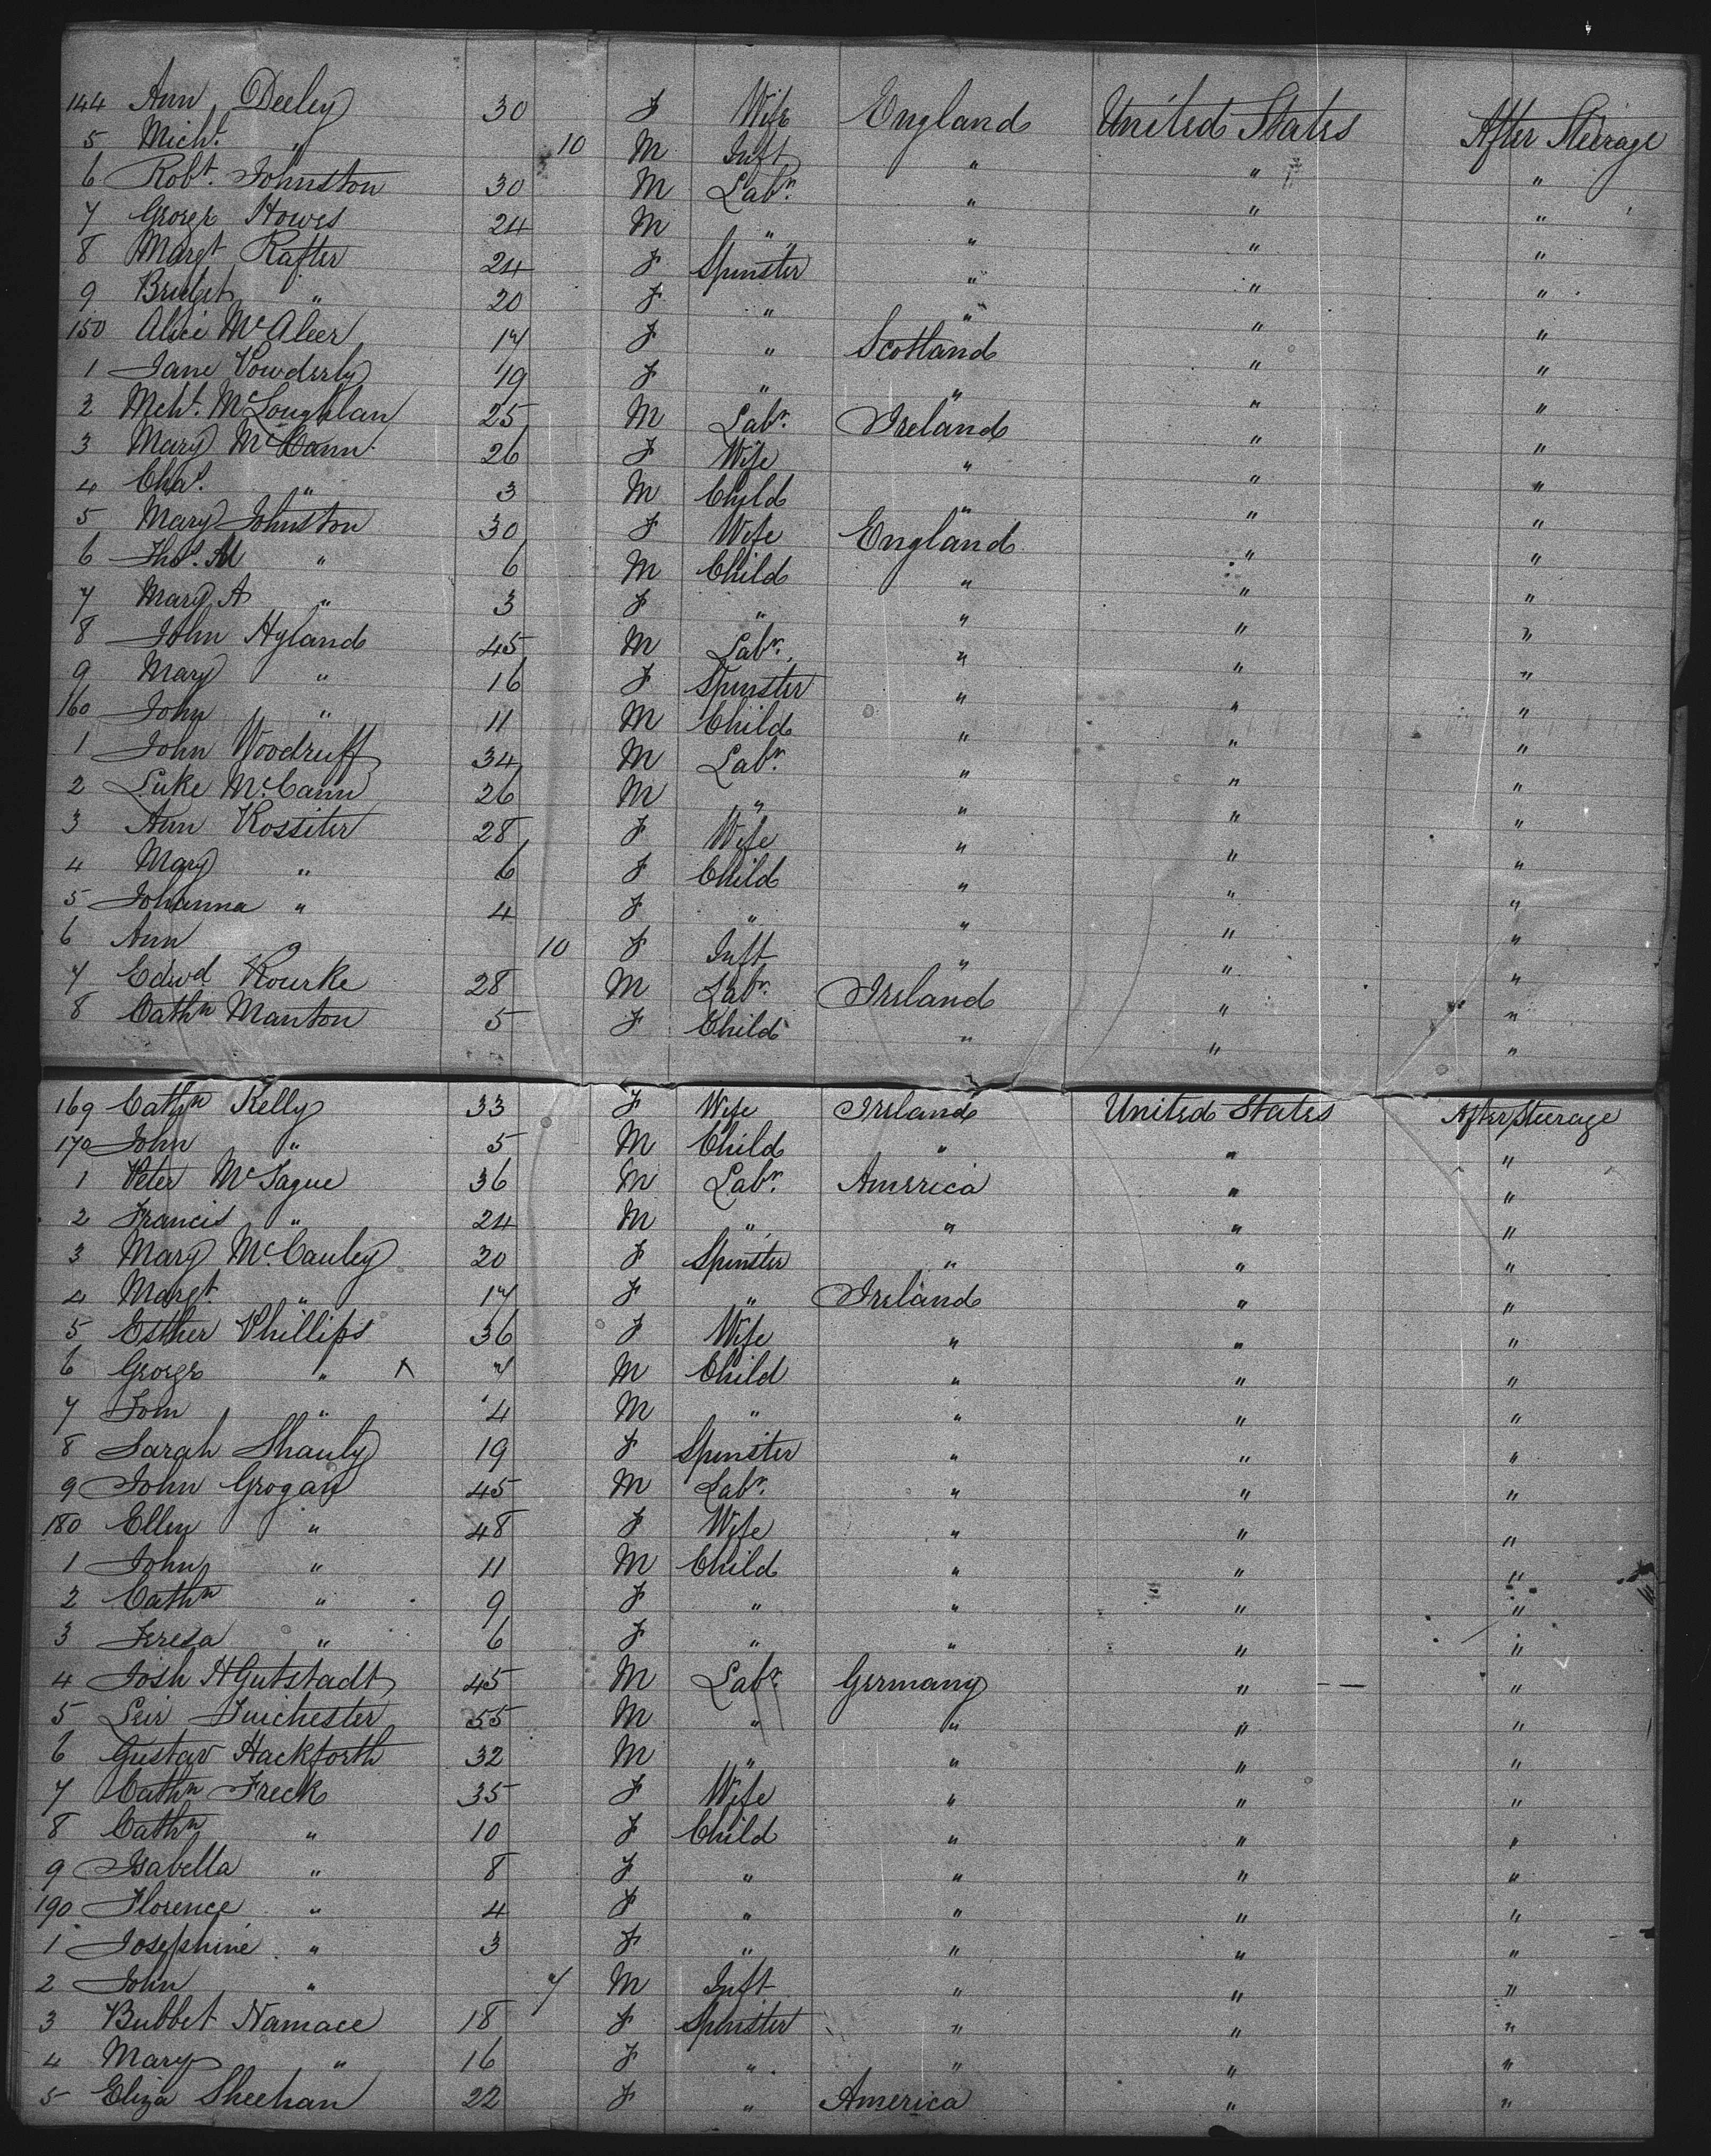 144 Ann Deeley 30 F Wife England United States After Steerage
5 Michl. " 10 M Inft " " "
6 Robt. Johnston 30 M Labr. " " "
7 George Howes 24 M " " " "
8 Margt Rafter 24 F Spinster " " "
9 Bridget " 20 F " " " "
150 Alice McAleer 17 F " Scotland " "
1 Jane Powderly 19 F " " " "
2 Mchl. McLoughlan 25 M Labr. Ireland " "
3 Mary McCann 26 F Wife " " "
4 Chas. " 3 M Child " " "
5 Mary Johnston 30 F Wife England " "
6 Thos. M " 6 M Child " " "
7 Mary A " 3 F " " " "
8 John Hyland 45 M Labr. " " "
9 Mary " 16 F Spinster " " "
160 John " 11 M Child " " "
1 John Woodruff 34 M Labr. " " "
2 Luke McCann 26 M " " " "
3 Ann Rossiter 28 F Wife " " "
4 Mary " 6 F Child " " "
5 Johanna " 4 F " " " "
6 Ann 10 F Inft " " "
7 Edwd Rourke 28 M Labr. Ireland " "
8 Cathn Manton 5 F Child " " "
169 Cathn Kelly 33 F Wife Ireland United States After Steerage
170 John " 5 M Child " " "
1 Peter McTague 36 M Labr. America " "
2 Francis " 24 M " " " "
3 Mary McCauley 20 F Spinster " " "
4 Margt. " 17 F " Ireland " "
5 Esther Phillips 36 F Wife " " "
6 George " X 7 M Child " " "
7 Tom " 4 M " " " "
8 Sarah Shauly 19 F Spinster " " "
9 John Grogan 45 M Labr. " " "
180 Ellen " 48 F Wife " " "
1 John " 11 M Child " " "
2 Cathn " 9 F " " " "
3 Teresa " 6 F " " " "
4 Josh HGutstadt 45 M Labr. Germany " "
5 Leir 55 M " " " "
6 Gustav Hackforth 32 M " " " "
7 Cathn Freck 35 F Wife " " "
8 Cathn " 10 F Child " " "
9 Isabella " 8 F " " " "
190 Florence " 4 F " " " "
1 Josephine " 3 F " " " "
2 John " 7 M Inft " " "
3 Bubbet Namace 18 F Spinster " " "
4 Mary " 16 F " " " "
5 Eliza Sheehan 22 F " America " "